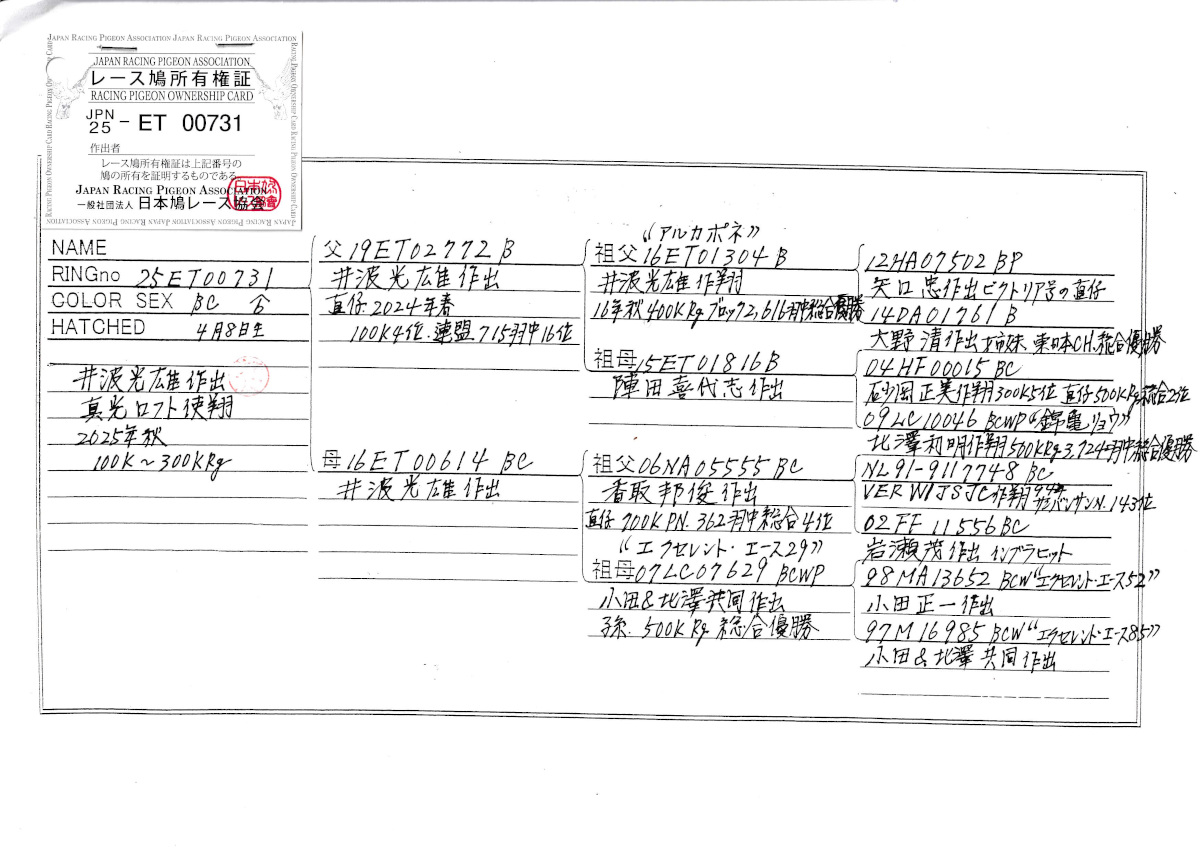 JAPAN RACING PIGEON ASSOCIATION JAPAN RACING PIGEON ASSOCIATION
JAPAN RACING PIGEON ASSOCIATION
レース鳩所有権証
RACING PIGEON OWNERSHIP CARD
JPN 25 - ET 00731
作出者
レース鳩所有権証は上記番号の
鳩の所有を証明するものである
JAPAN RACING PIGEON ASSOCIATION
一般社団法人 日本鳩レース協会
NAME
RINGno 25ET00731
COLOR SEX BC 合
HATCHED 4月8日生
井波光雄作出
真光ロフト使翔
2025年秋
100K~300KRg
父 19ET02772 B
井波光雄作出
直仔 2024年春
100K4位.連盟715羽中16位
母 16ET00614 BC
井波光雄作出
"アルカポネ"
祖父 16ET01304 B
井波光雄作翔
16年秋400KRgブロック2,616羽中総合優勝
祖母 15ET01816 B
陣田喜代志作出
祖父 06NA05555 BC
香取邦俊作出
直仔 700K PN.362羽中総合4位
"エクセレント・エース29"
祖母 07LC07629 BCWP
小田&北澤共同作出
孫.500KRg 総合優勝
12HA07502 BP
矢口 忠作出ビクトリア号の直仔
14DA01761 B
大野 清作出 姉妹.東日本CH.総合優勝
04HF00015 BC
砂岡正美作翔300K5位 直仔500KRg総合2位
09LC10046 BCWP"錦亀リョウ"
北澤利明作翔500KRg.3.724羽中総合優勝
NL91-9117748 BC
VERWIJSJC作翔94年サンバンサンN.143位
02FF11556 BC
岩瀬茂作出 インブラヒット
98MA13652 BCW"エクセレント・エース52"
小田正一作出
97M16985 BCW"エクセレント・エース85"
小田&北澤共同作出